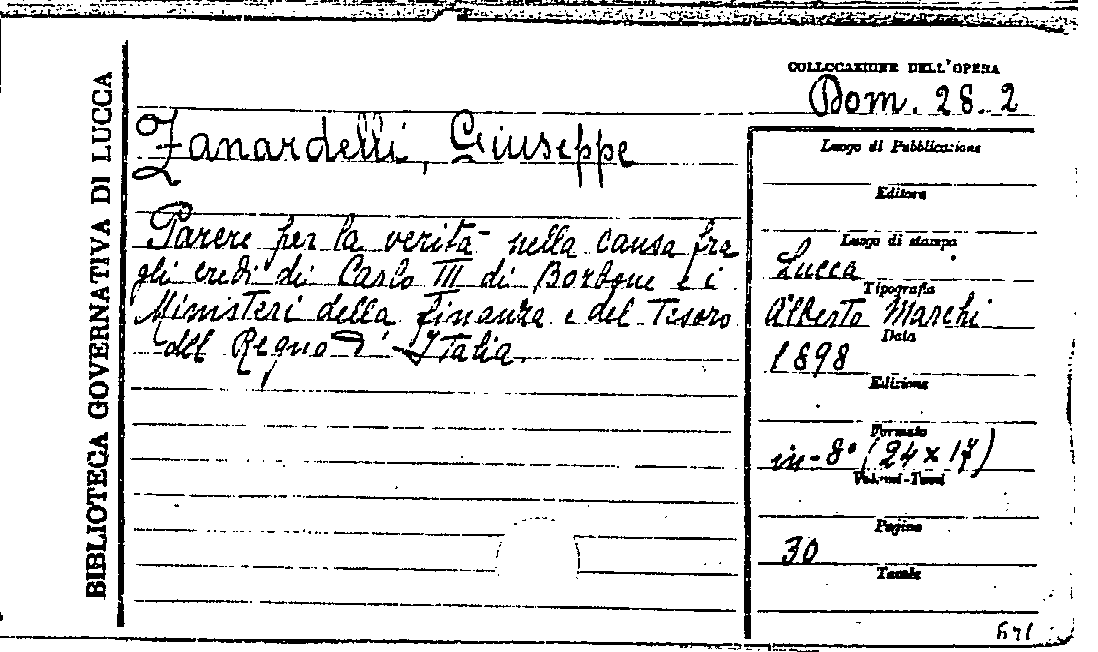 BIBLIOTECA GOVERNATIVA DI LUCCA
COLLOCAZIONE DELL'OPERA
Dom. 28. 2
Zanardelli, Giuseppe
Parere per la verità nella causa fra
gli eredi di Carlo III di Borbone e i
Ministeri della finanza e del Tesoro
del Regno d'Italia.
Luogo di Pubblicazione
Editore
Luogo di stampa
Lucca
Tipografia
Alberto Marchi
Data
1898
Edizione
Formato
in-8° (24 x 17)
Volumi-Tomi
Pagine
30
Tavole